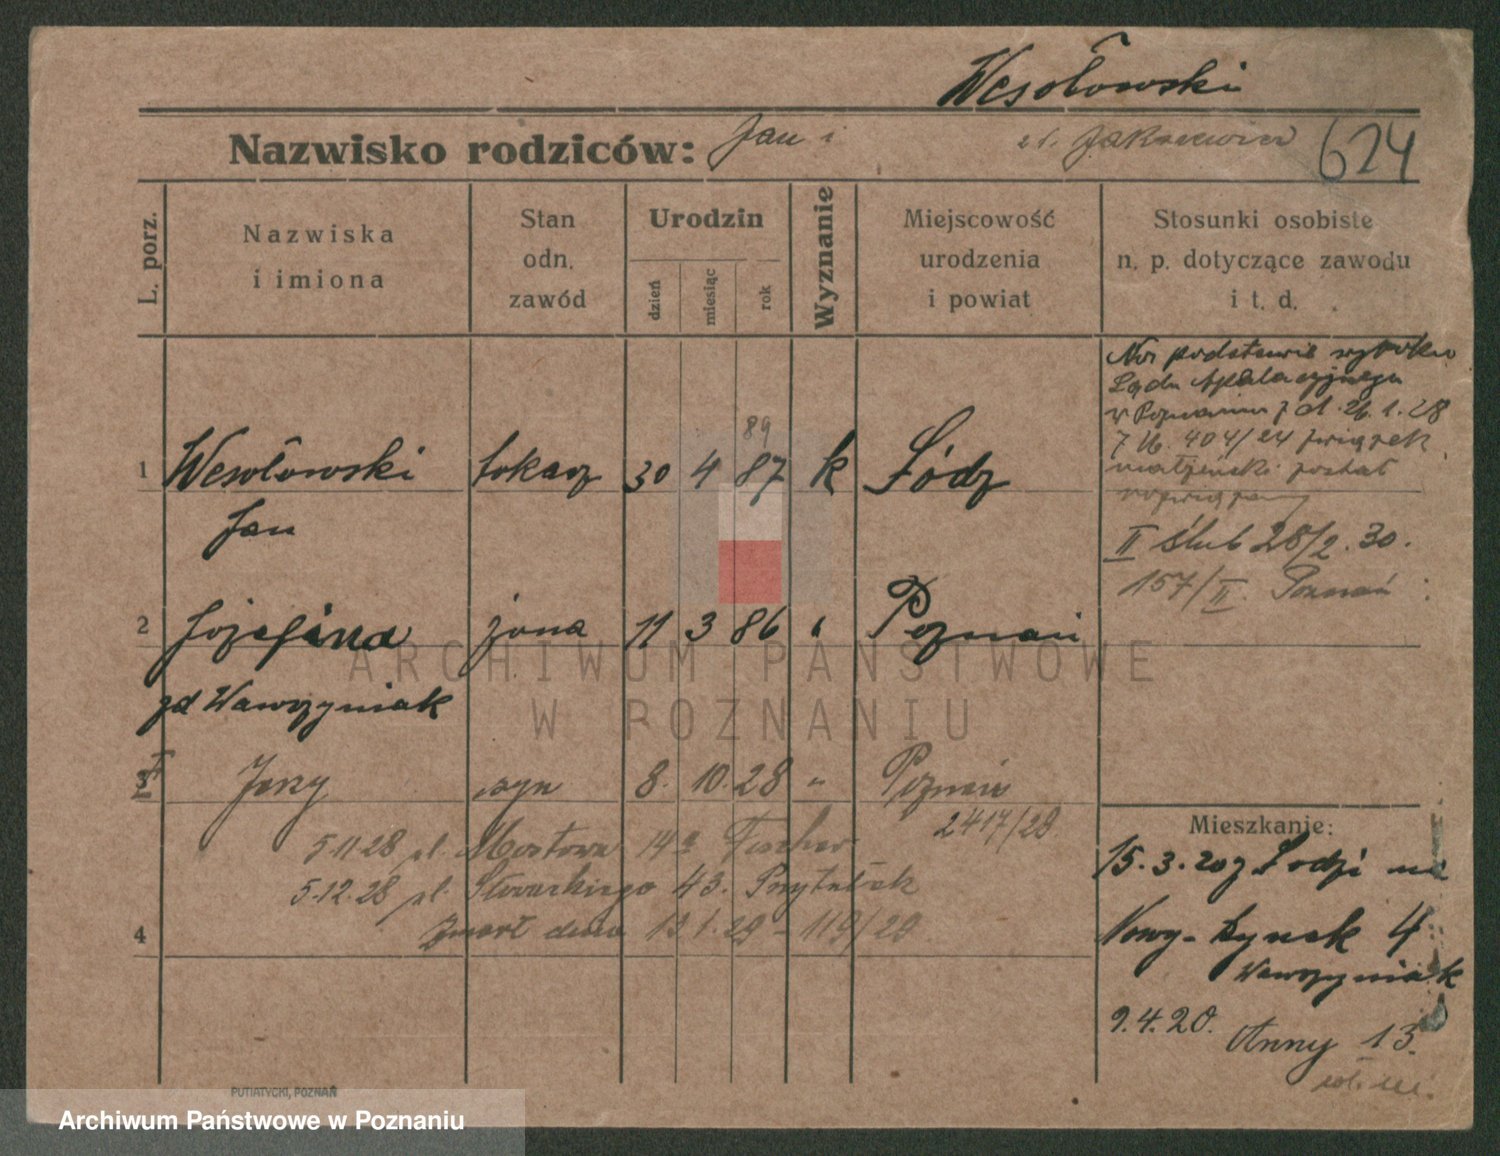 Wesołowski
Nazwisko rodziców: Jan i 624
L. porz.
Nazwiska
i imiona
Stan
odn.
zawód
Urodzin
dzień
miesiąc
rok
Wyznanie
Miejscowość
urodzenia
i powiat
Stosunki osobiste
n. p. dotyczące zawodu
i t. d.
Na podstawie wyroku
Sądu Apelacyjnego
w Poznaniu z d. 26.1.28
7 U. 404/24 związek
małżeński został
rozwiązany
II ślub 28/2.30.
157/II Poznań
89
1 Wesołowski tokarz 30 4 87 k Łódz
Jan
2 Józefina żona 11 3 86 " Poznań
zd Wawrzyniak
3 Jerzy syn 8. 10. 28 " Poznań
2417/28
5.11.28 pl. Mostowa 14a Fischer
5.12.28 pl. 43. Przytułek
4 Zmarł dnia 1.29 - 119/29
Mieszkanie:
15.3.20 z Łodzi na
Nowy-Rynek 4
Wawrzyniak
9.4.20. Anny 13.
PUTIATYCKI, POZNAŃ
ARCHIWUM PAŃSTWOWE
W POZNANIU
Archiwum Państwowe w Poznaniu